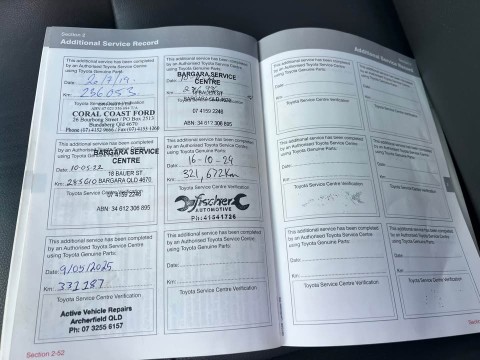 Section 2
Additional Service Record
This additional service has been completed
by an Authorised Toyota Service Centre
using Toyota Genuine Parts:
Date:
Km: 236053
CORAL COAST FORD
26 Bourbong Street / PO Box 2513
Bundaberg Qld 4670
This additional service has been completed
by an Authorised Toyota Service Centre
BARGARA SERVICE
CENTRE
BARGARA QLD 4670
07 4159 2248
ABN: 34 612 306 895
This additional service has been completed
by an Authorised Toyota Service Centre
BARGARA SERVICE
CENTRE
Date: 10-05-22
16 BAUER ST
Km:
BARGARA QLD 4670
Toyota Service Centre Verification
07 4159 2248
ABN: 34 612 306 895
This additional service has been completed
by an Authorised Toyota Service Centre
using Toyota Genuine Parts:
Date: 16-10-24
Km: 321,672km
Toyota Service Centre Verification
fischer
AUTOMOTIVE
Ph:41541726
This additional service has been completed
by an Authorised Toyota Service Centre
using Toyota Genuine Parts:
Date: 9/05/2025
Km: 332287
Toyota Service Centre Verification
Active Vehicle Repairs
Archerfield QLD
Ph: 07 3255 6157
This additional service has been completed
by an Authorised Toyota Service Centre
using Toyota Genuine Parts:
Date:
Km:
Toyota Service Centre Verification
Section 2-52
Additional Service Record
This additional service has been completed
by an Authorised Toyota Service Centre
using Toyota Genuine Parts:
Date:
Km:
Toyota Service Centre Verification
This additional service has been completed
by an Authorised Toyota Service Centre
using Toyota Genuine Parts:
Date:
Km:
Toyota Service Centre Verification
This additional service has been completed
by an Authorised Toyota Service Centre
using Toyota Genuine Parts:
Date:
Km:
Toyota Service Centre Verification
This additional service has been completed
by an Authorised Toyota Service Centre
using Toyota Genuine Parts:
Date:
Km:
Toyota Service Centre Verification
This additional service has been completed
by an Authorised Toyota Service Centre
using Toyota Genuine Parts:
Date:
Km:
Toyota Service Centre Verification
This additional service has been completed
by an Authorised Toyota Service Centre
using Toyota Genuine Parts:
Date:
Km:
Toyota Service Centre Verification